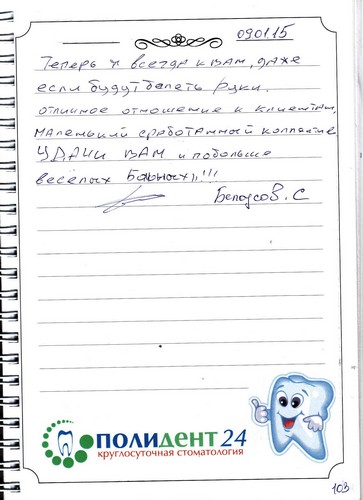 090115
Теперь я всегда к ВАМ, даже
если будут болеть руки.
отличное отношение к клиентам,
маленький сработанный коллектив
УДАЧИ ВАМ и побольше
весёлых Больных!!!
Белоусов. С
ПОЛИДЕНТ 24
круглосуточная стоматология
103